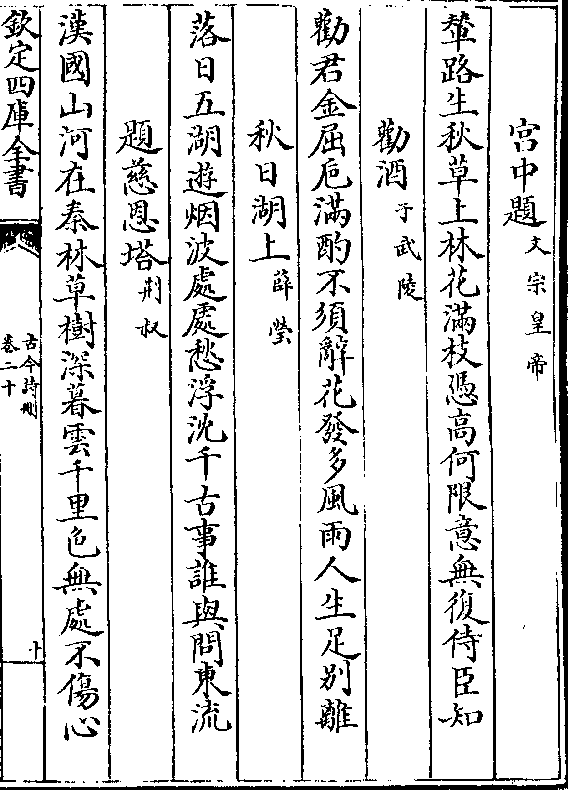 宮中題 文宗皇帝
輦路生秋草上林花滿枝憑高何限意無復侍臣知
勸酒 于武陵
勸君金屈卮滿酌不須辭花發多風雨人生足別離
秋日湖上 薛瑩
落日五湖遊烟波處處愁浮沈千古事誰與問東流
題慈恩塔 荆叔
漢國山河在秦林草樹深暮雲千里色無處不傷心
欽定四庫全書
古今詩刪
卷二十
十